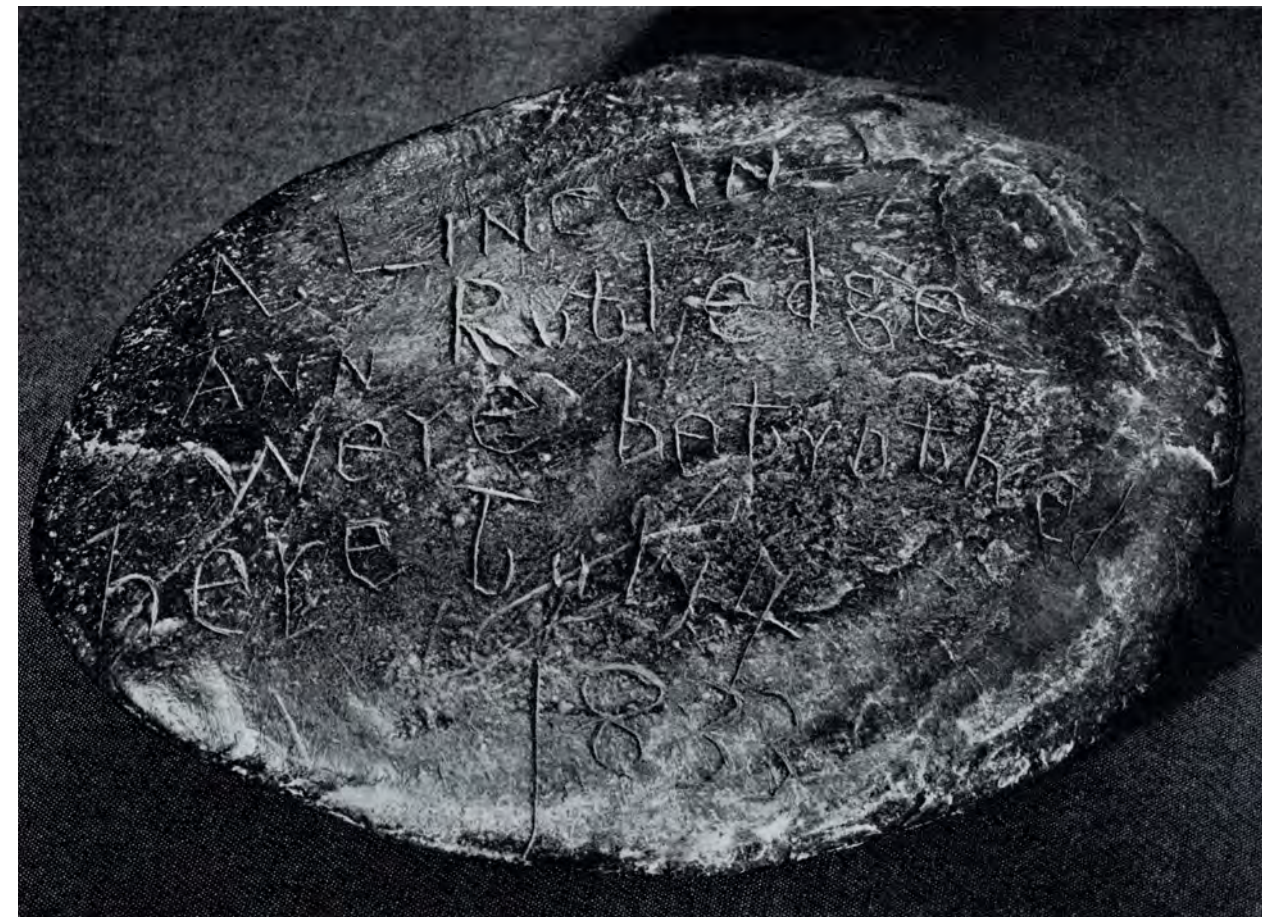 A. LINCOLN
ANN Rutledge
Were betrothed
here July 4
1833